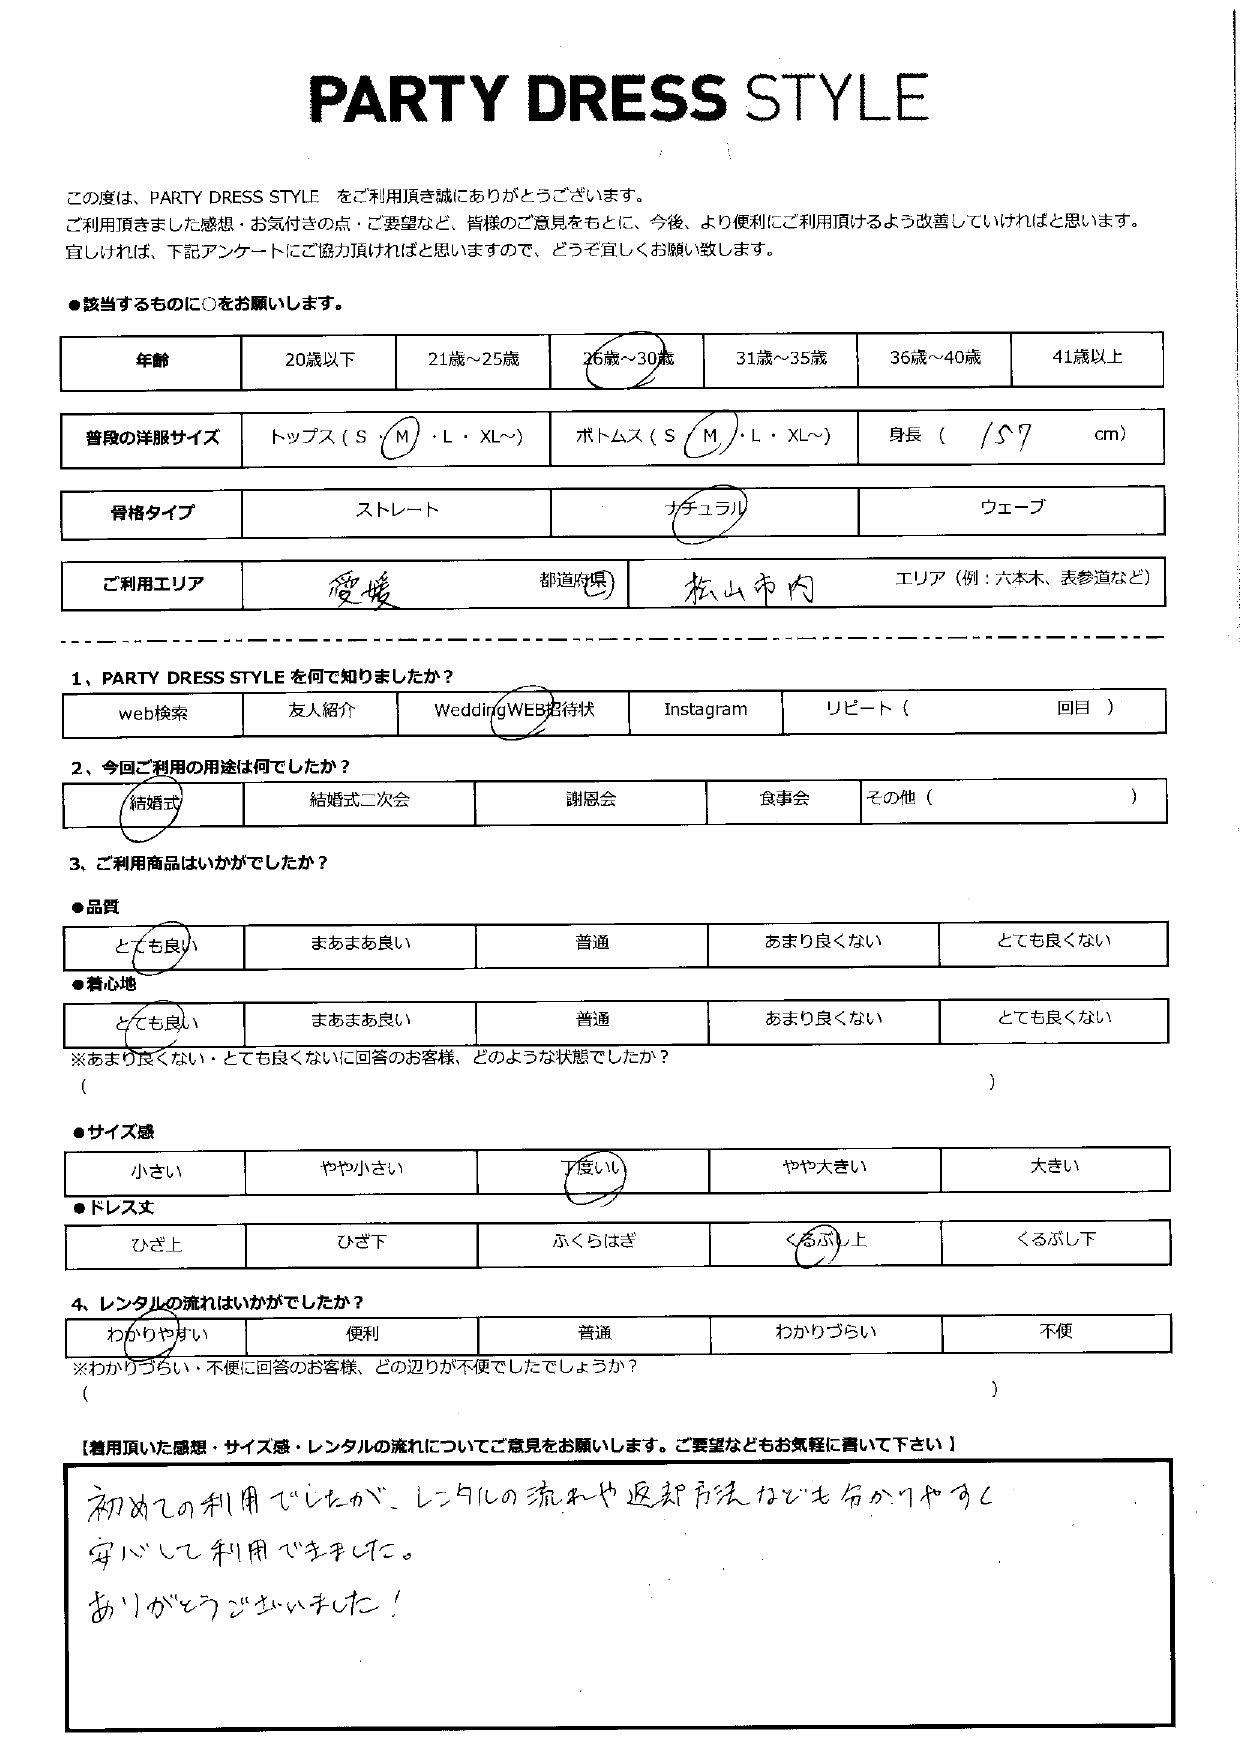 PARTY DRESS STYLE
この度は、PARTY DRESS STYLE をご利用頂き誠にありがとうございます。
ご利用頂きました感想・お気付きの点・ご要望など、皆様のご意見をもとに、今後、より便利にご利用頂けるよう改善していければと思います。
宜しければ、下記アンケートにご協力頂ければと思いますので、どうぞ宜しくお願い致します。
●該当するものに○をお願いします。
年齢 20歳以下 21歳～25歳 26歳～30歳 31歳～35歳 36歳～40歳 41歳以上
普段の洋服サイズ トップス ( S ・ M ・L ・ XL～) ボトムス ( S ・ M ・L ・ XL～) 身長 ( 157 cm)
骨格タイプ ストレート ナチュラル ウェーブ
ご利用エリア 愛媛 都道府県 松山市内 エリア（例：六本木、表参道など）
1、PARTY DRESS STYLE を何で知りましたか？
web検索 友人紹介 WeddingWEB招待状 Instagram リピート ( 回目 )
2、今回ご利用の用途は何でしたか？
結婚式 結婚式二次会 謝恩会 食事会 その他 ( )
3、ご利用商品はいかがでしたか？
●品質
とても良い まあまあ良い 普通 あまり良くない とても良くない
●着心地
とても良い まあまあ良い 普通 あまり良くない とても良くない
※あまり良くない・とても良くないに回答のお客様、どのような状態でしたか？
( )
●サイズ感
小さい やや小さい 丁度いい やや大きい 大きい
●ドレス丈
ひざ上 ひざ下 ふくらはぎ くるぶし上 くるぶし下
4、レンタルの流れはいかがでしたか？
わかりやすい 便利 普通 わかりづらい 不便
※わかりづらい・不便に回答のお客様、どの辺りが不便でしたでしょうか？
( )
【着用頂いた感想・サイズ感・レンタルの流れについてご意見をお願いします。ご要望などもお気軽に書いて下さい 】
初めての利用でしたが、レンタルの流れや返却方法なども分かりやすく
安心して利用できました。
ありがとうございました！